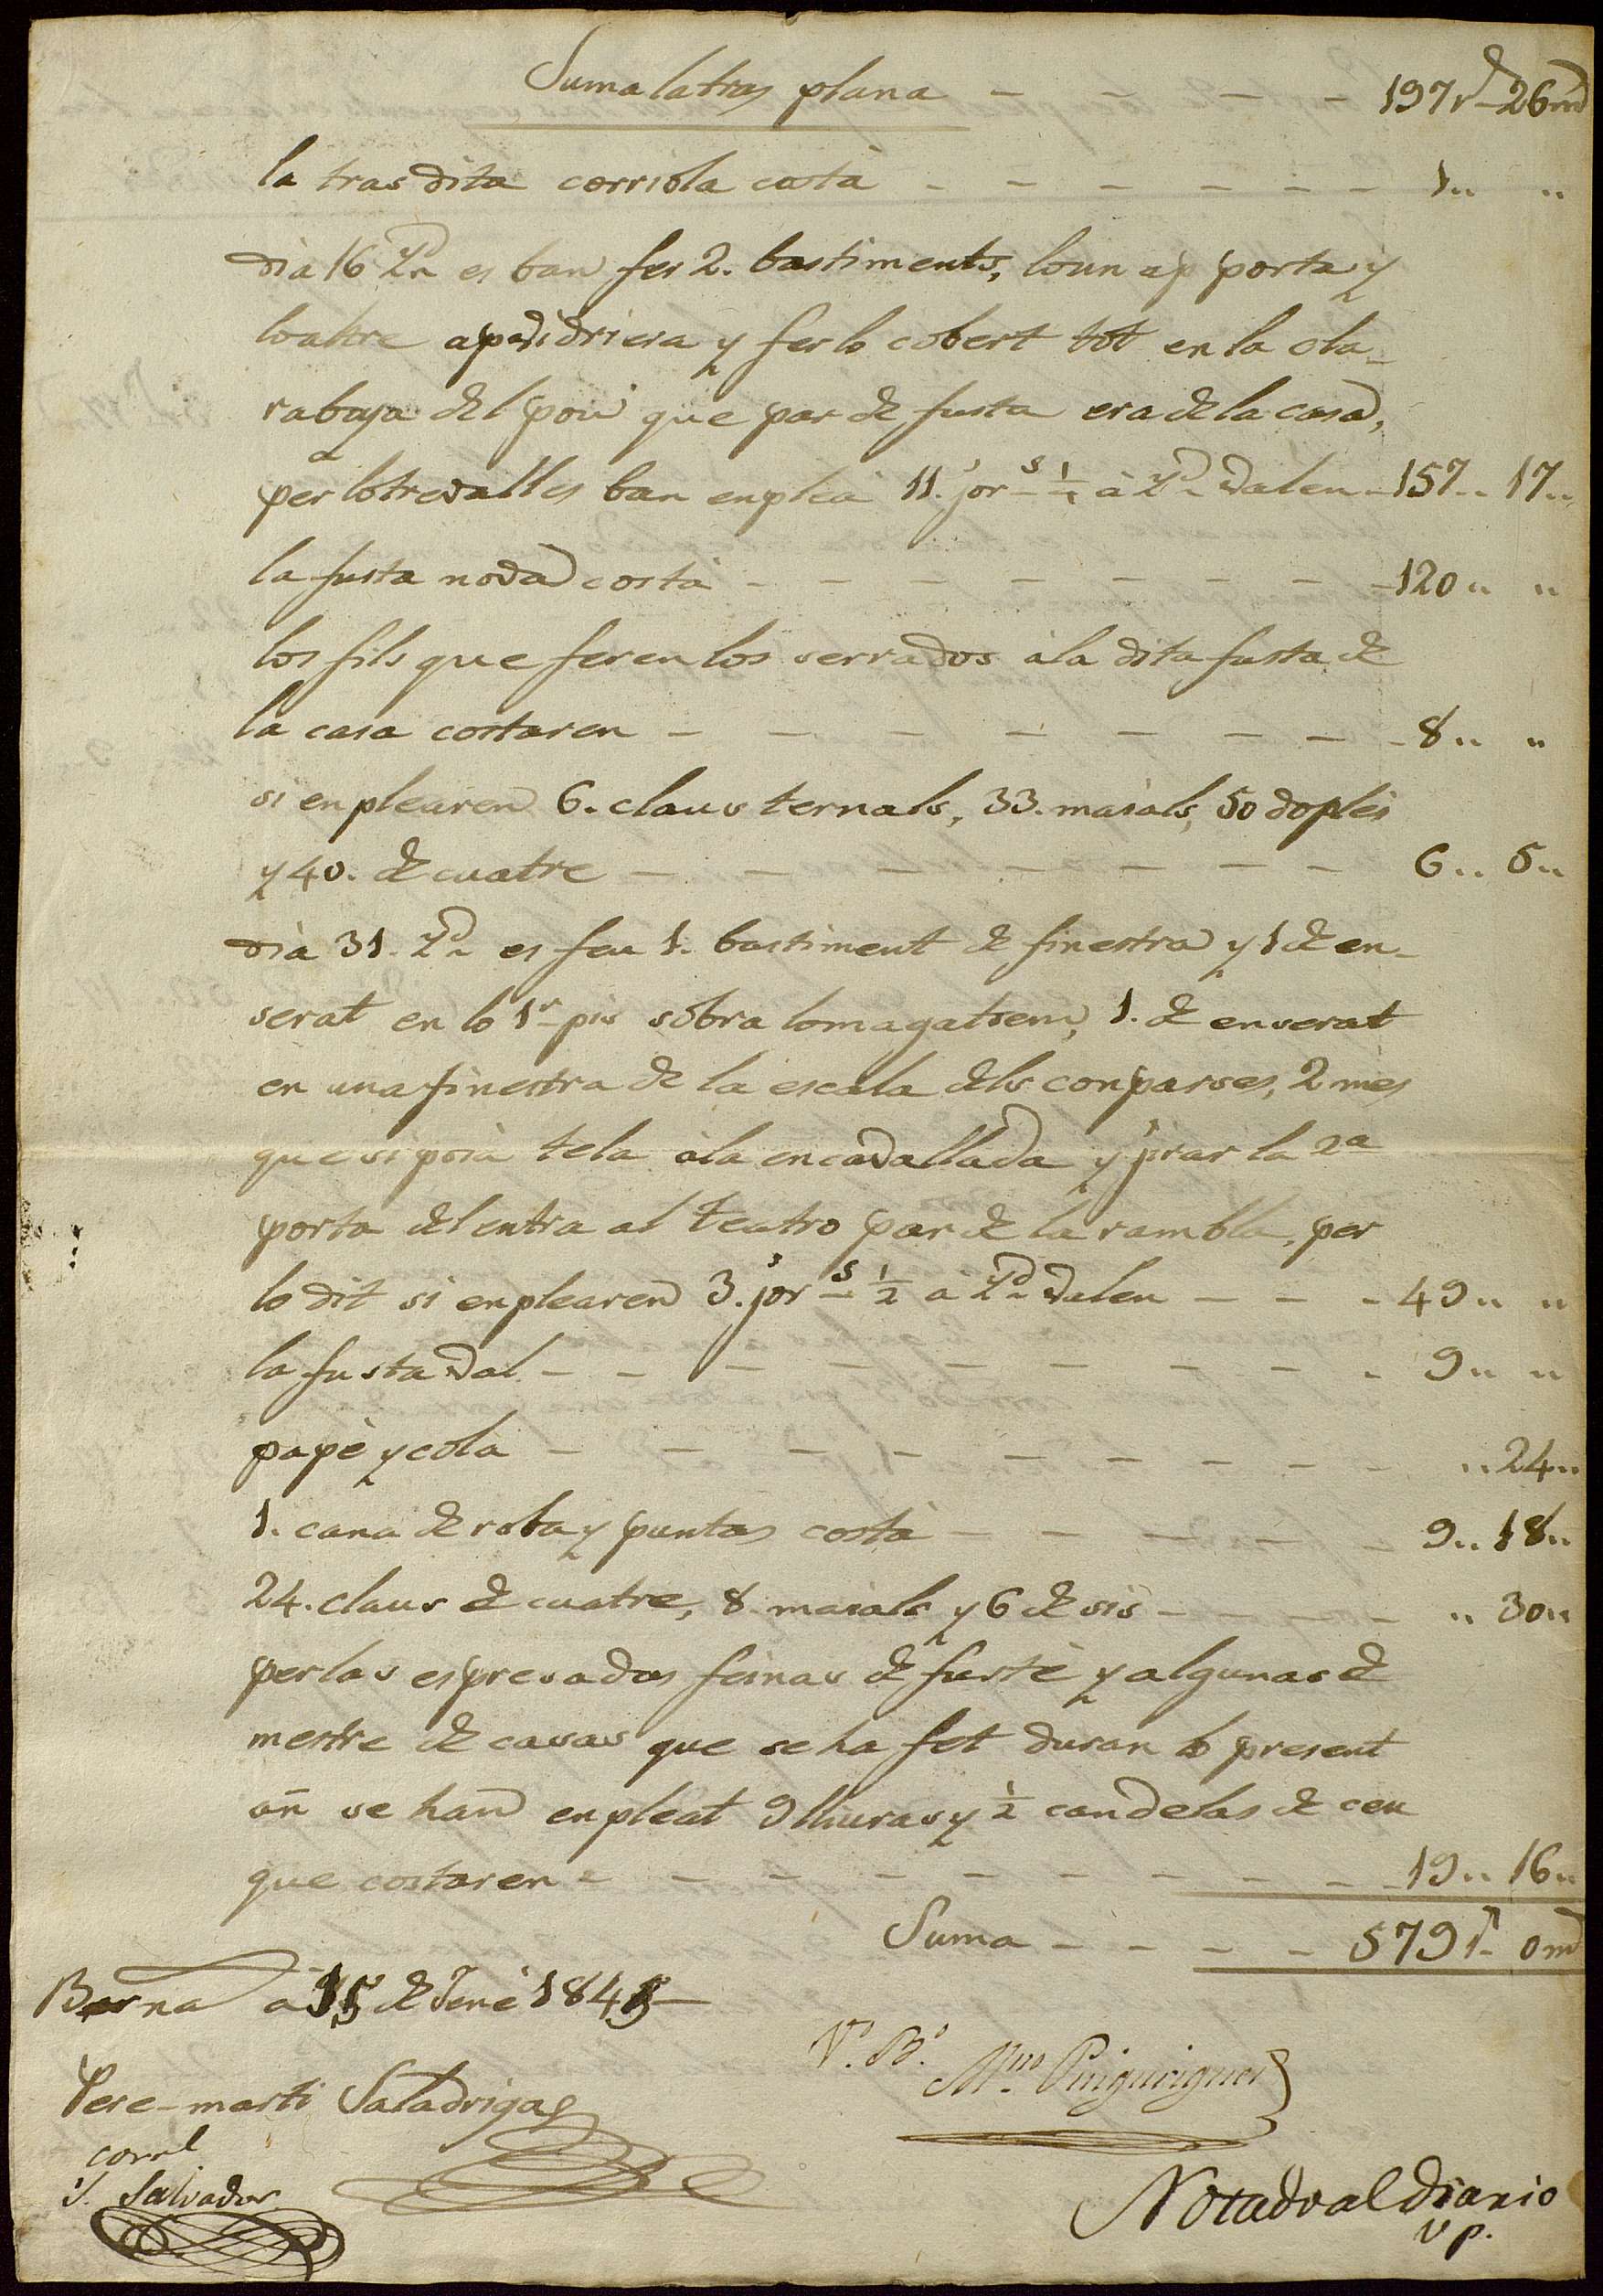 Suma latras plana - - - - - 197 r.s 26 md
la tras dita corriola costà - - - - - - 1.. ..
dia 16 Id.n es ban fer 2. bastiments, loun ap porta y
loaltre apadidriera y ferlo cobert tot en la ola-
rabaja del pou que par de fusta era de la casa,
per lo trevall es ban enpleá 11. jor.s 1/4 à Id.n valen - 157.. 17..
la fusta nova costá - - - - - - - 120.. ..
los fils que feren los serrados à la dita fusta de
la casa costaren - - - - - - - 8.. ..
si enplearen 6. claus ternals, 33. maials, 50 doplés
y 40. de cuatre - - - - - - - 6.. 5..
dia 31. Id.n es feu 1. bastiment de finestra y 1 de en-
serat en lo 1r pis sobra lo magatsem, 1. de enserat
en una finestra de la escala dels conparses, 2 mes
que si posà tela à la encavallada y jirar la 2a
porta del entra al teatro par de la rambla, per
lo dit si enplearen 3. jor.s 1/2 à Id.n valen - - - 49.. ..
la fusta val - - - - - - - - 9.. ..
papè y cola - - - - - - - - .. 24..
1. cana de roba y puntas costà - - - - - 9.. 18..
24. claus de cuatre, 8. maials y 6 de sis - - - - .. 30..
per las espresadas feinas de fustè y algunas de
mestre de casas que se ha fet duran lo present
añ se han enpleat 9 lluras y 1/2 candelas de ceu
que costaren - - - - - - - - 19.. 16..
Suma - - - - 579 r.s 0 md
Barna à 15 de Jenè 1845
V.o B.o
M.no Puiguriguer
Pere-marti Saladrigas
corrl
J. Salvador
Notado al diario
v p.